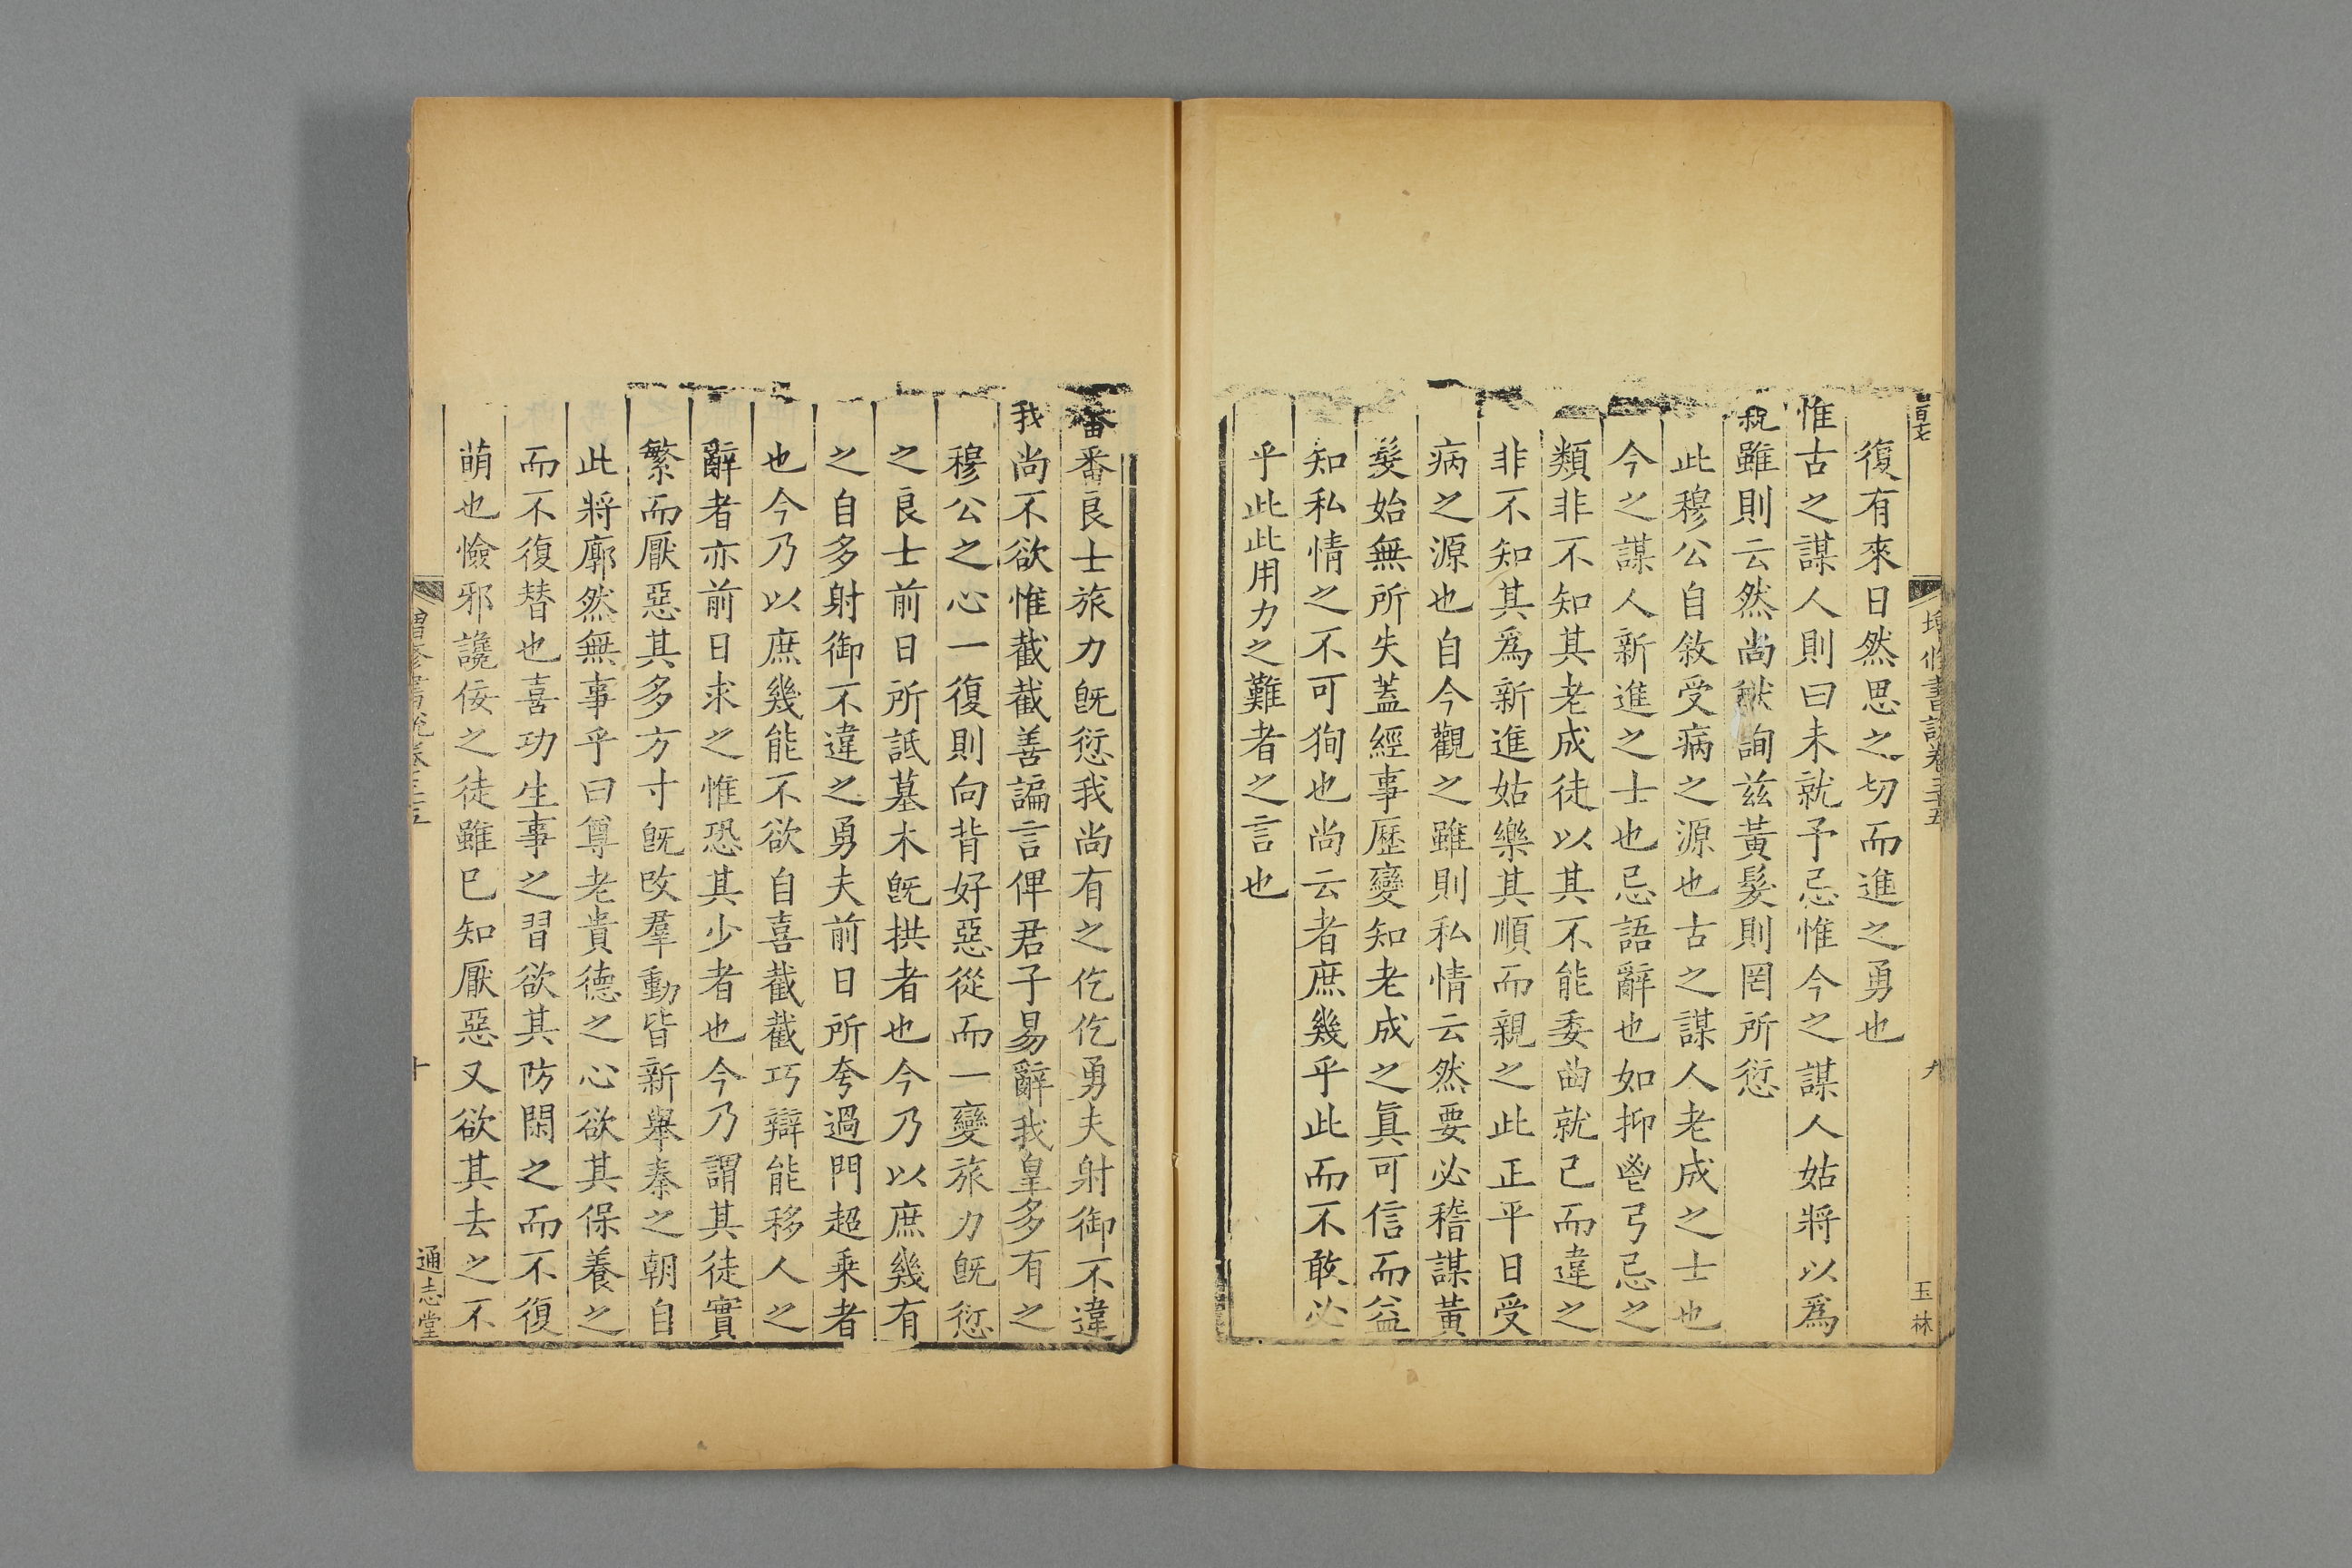 復有來日然思之切而進之勇也
惟古之謀人則曰未就予忌惟今之謀人姑將以爲
雖則云然尚猷詢兹黃髮則罔所愆
此穆公自敘受病之源也古之謀人老成之士也
今之謀人新進之士也忌語辭也如抑鬯弓忌之
類非不知其老成徒以其不能委曲就己而違之
非不知其爲新進姑樂其順而親之此正平日受
病之源也自今觀之雖則私情云然要必稽謀黃
髮始無所失蓋經事歷變知老成之眞可信而益
知私情之不可狥也尚云者庶幾乎此而不敢必
乎此此用力之難者之言也
增修書說卷三十五
九
玉林
番番良士旅力旣愆我尚有之仡仡勇夫射御不違
我尚不欲惟截截善諞言俾君子易辭我皇多有之
穆公之心一復則向背好惡從而一變旅力旣愆
之良士前日所詆墓木旣拱者也今乃以庶幾有
之自多射御不違之勇夫前日所夸過門超乘者
也今乃以庶幾能不欲自喜截截巧辯能移人之
辭者亦前日求之惟恐其少者也今乃謂其徒實
繁而厭惡其多方寸旣改羣動皆新舉秦之朝自
此將廓然無事乎曰尊老貴德之心欲其保養之
而不復替也喜功生事之習欲其防閑之而不復
萌也憸邪讒佞之徒雖已知厭惡又欲其去之不
增修書說卷三十五
十
通志堂